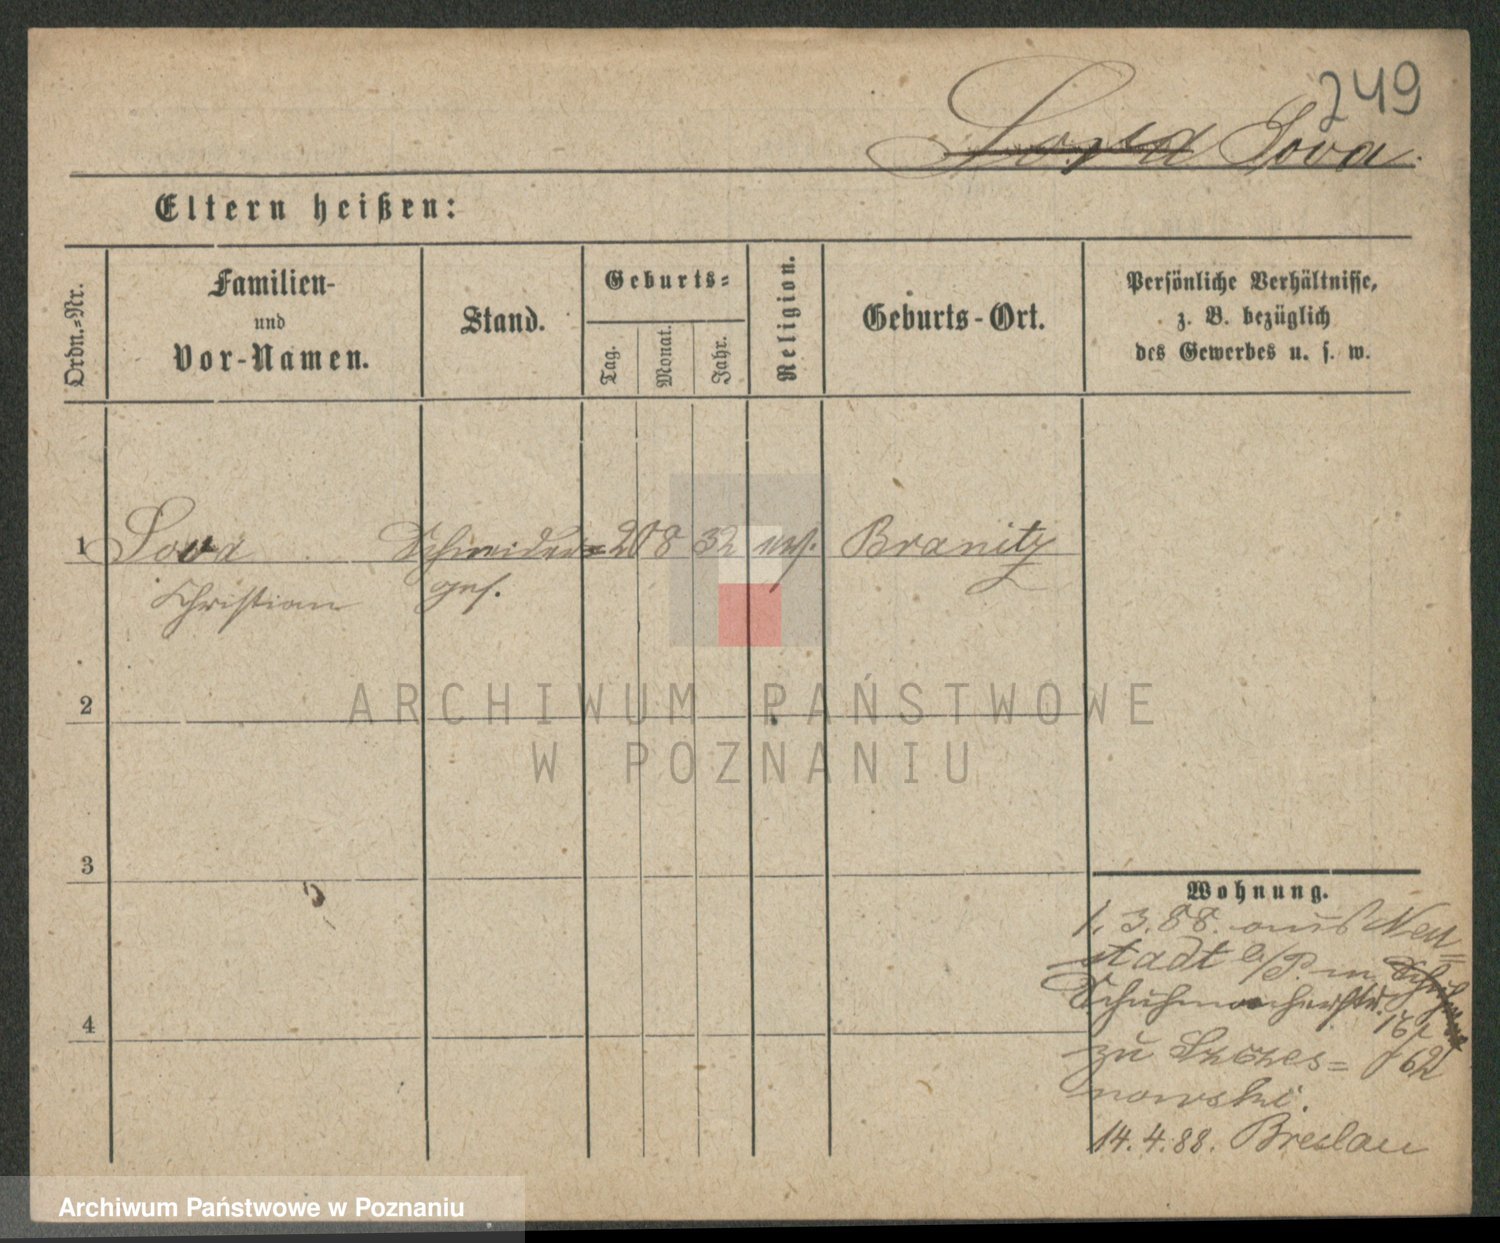 249
Sowa Sova.
Eltern heißen:
Ordn.-Nr.
Familien-
und
Vor-Namen.
Stand.
Geburts-
Tag.
Monat.
Jahr.
Religion.
Geburts-Ort.
Persönliche Verhältnisse,
z. B. bezüglich
des Gewerbes u. s. w.
1 Sova Schneider= 20 8 32 ev. Branitz
Christian ges.
2
3
4
Wohnung.
1. 3. 88. aus Neu=
stadt b/P. in
Schuhmacherstr.
zu Szczes=
nowski.
14. 4. 88. Breslau
ARCHIWUM PAŃSTWOWE
W POZNANIU
Archiwum Państwowe w Poznaniu